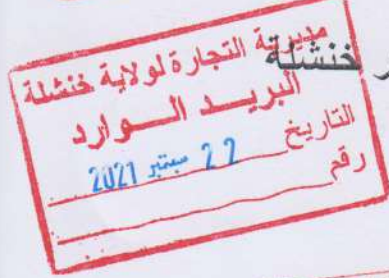 خنشلة
مديرية التجارة لولاية خنشلة
البريد الوارد
التاريخ 22 سبتمبر 2021
رقم